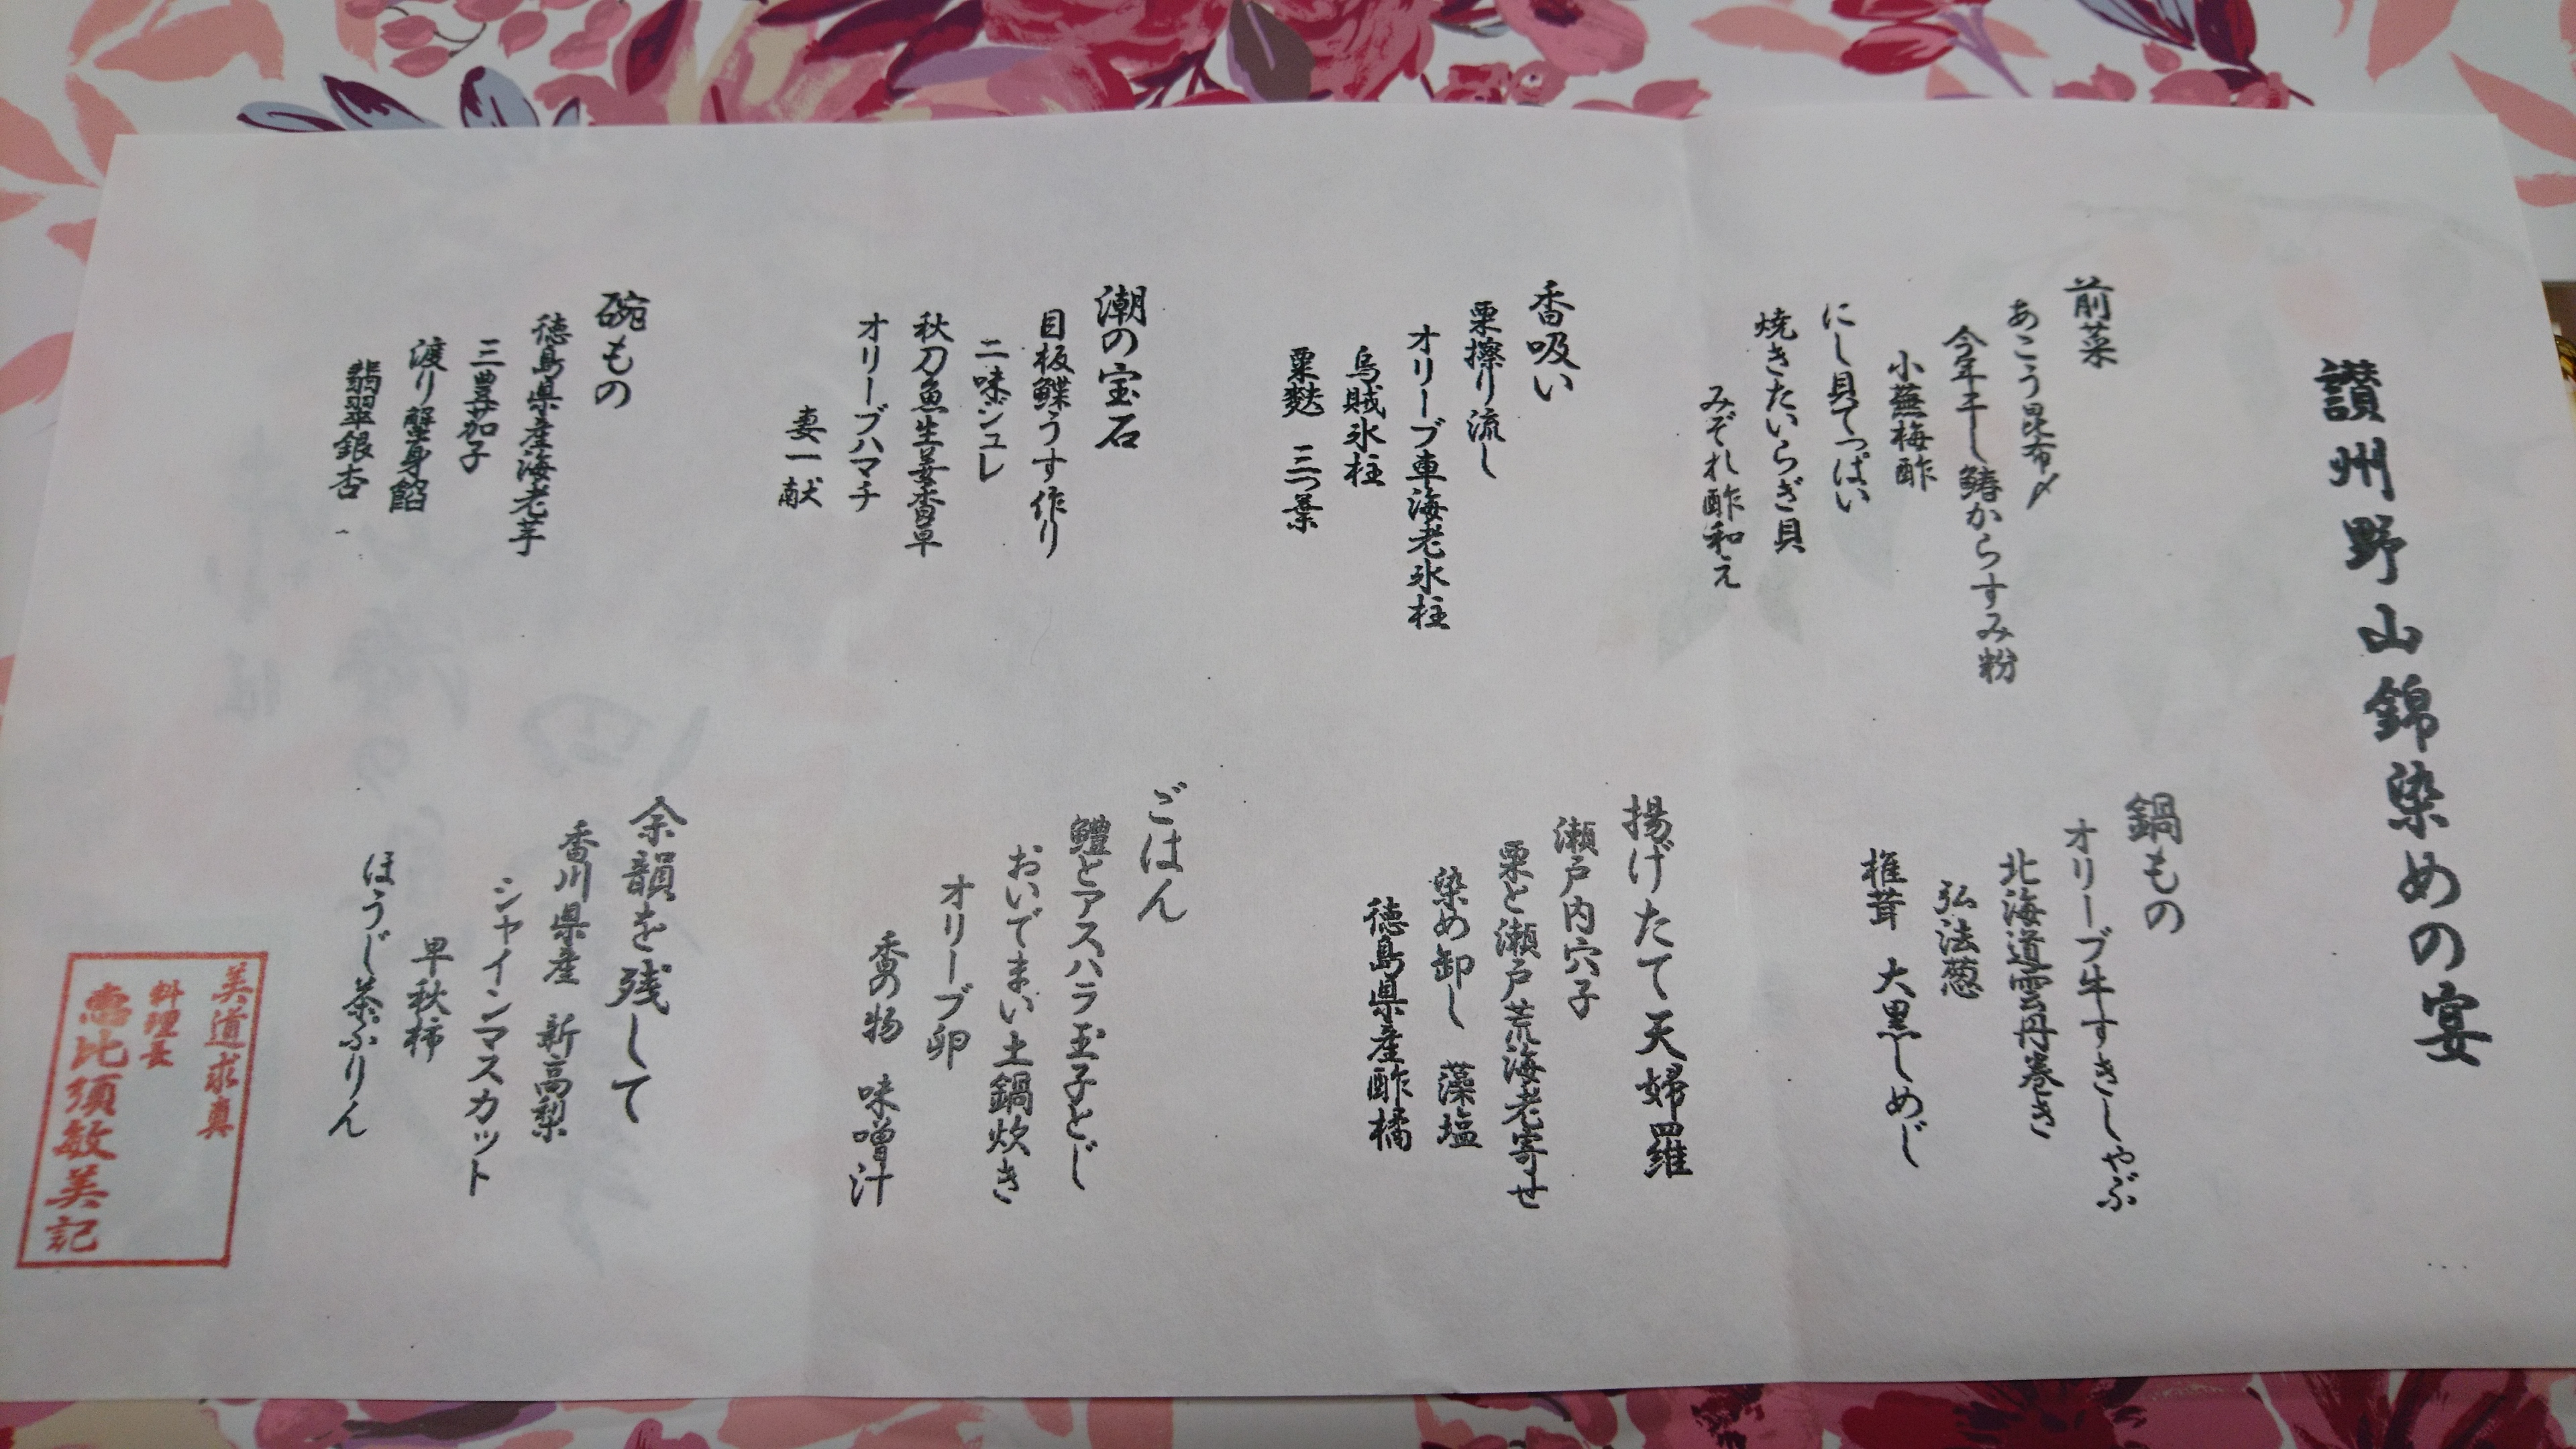 讃州野山錦染めの宴
前菜
あこう昆布〆
今年干し鰆からすみ粉
小蕪梅酢
にし貝てっぱい
焼きたいらぎ貝
みぞれ酢和え
香吸い
栗擦り流し
オリーブ車海老氷柱
烏賊氷柱
粟麩 三つ葉
潮の宝石
目板鰈うす作り
二味ジュレ
秋刀魚生姜香草
オリーブハマチ
妻一献
碗もの
徳島県産海老芋
三豊茄子
渡り蟹身餡
翡翠銀杏
鍋もの
オリーブ牛すきしゃぶ
北海道雲丹巻き
弘法葱
椎茸 大黒しめじ
揚げたて天婦羅
瀬戸内穴子
栗と瀬戸荒海老寄せ
染め卸し 藻塩
徳島県産酢橘
ごはん
鱧とアスパラ玉子とじ
おいでまい土鍋炊き
オリーブ卵
香の物 味噌汁
余韻を残して
香川県産 新高梨
シャインマスカット
早秋柿
ほうじ茶ぷりん
美道求真
料理長
恵比須敏美記